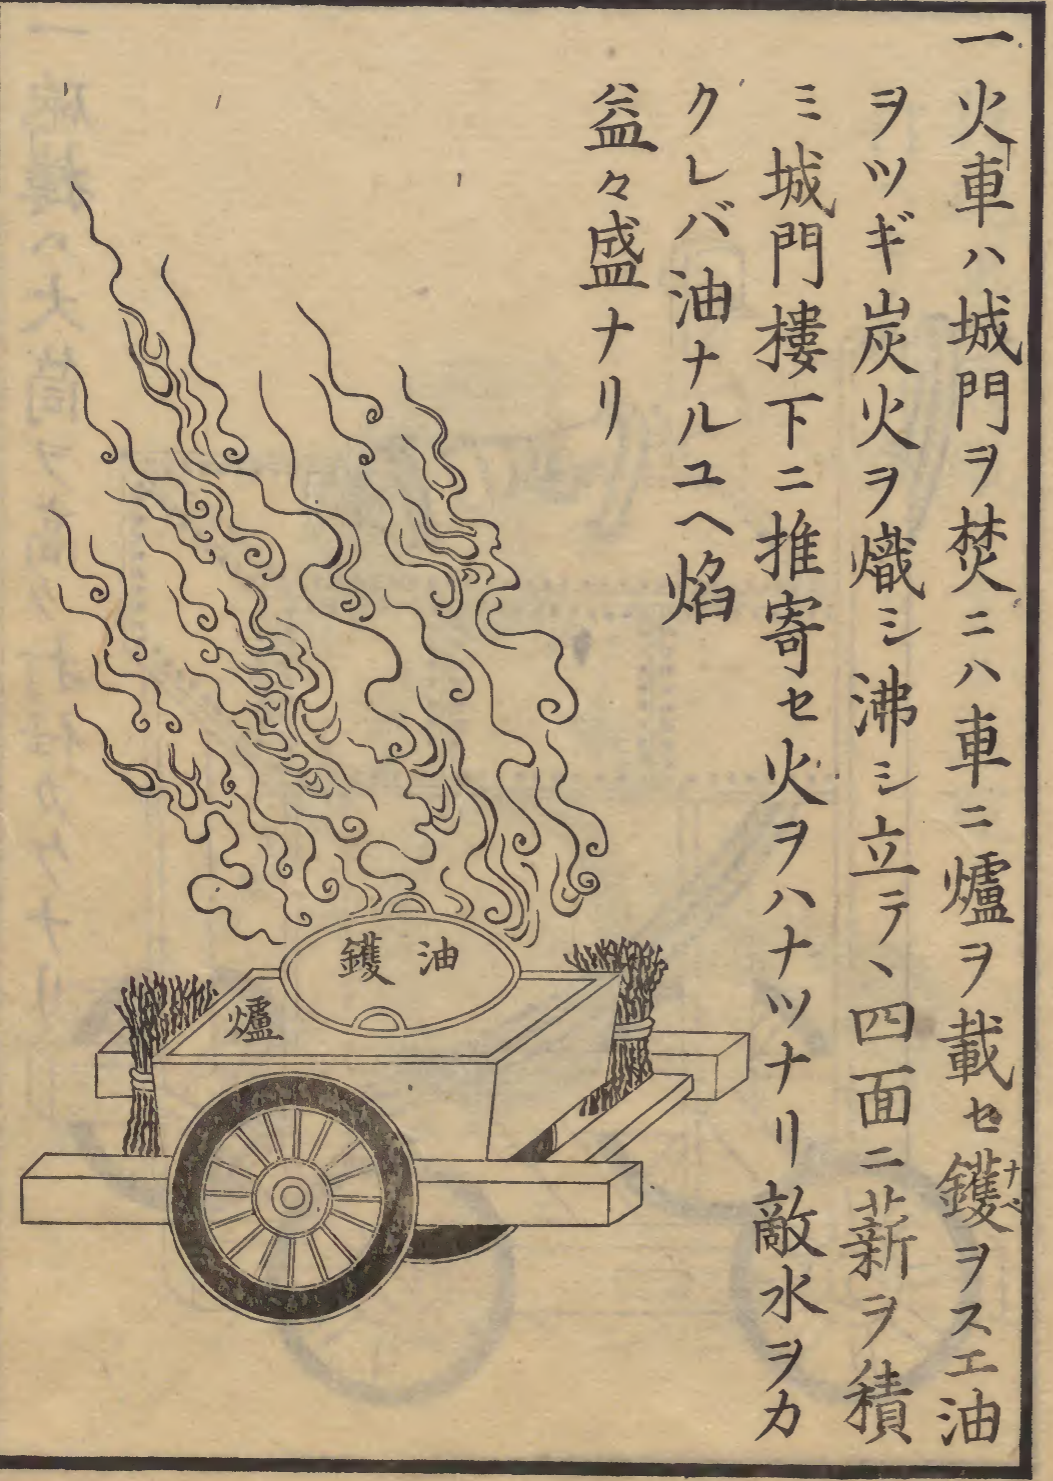 一火車ハ城門ヲ焚ニハ車ニ爐ヲ載セ鑊ヲスエ油
ナベ
ヲツギ炭火ヲ熾シ沸シ立テヽ四面ニ薪ヲ積
ミ城門樓下ニ推寄セ火ヲハナツナリ敵水ヲカ
クレバ油ナルユヘ焰
益々盛ナリ
油鑊
爐